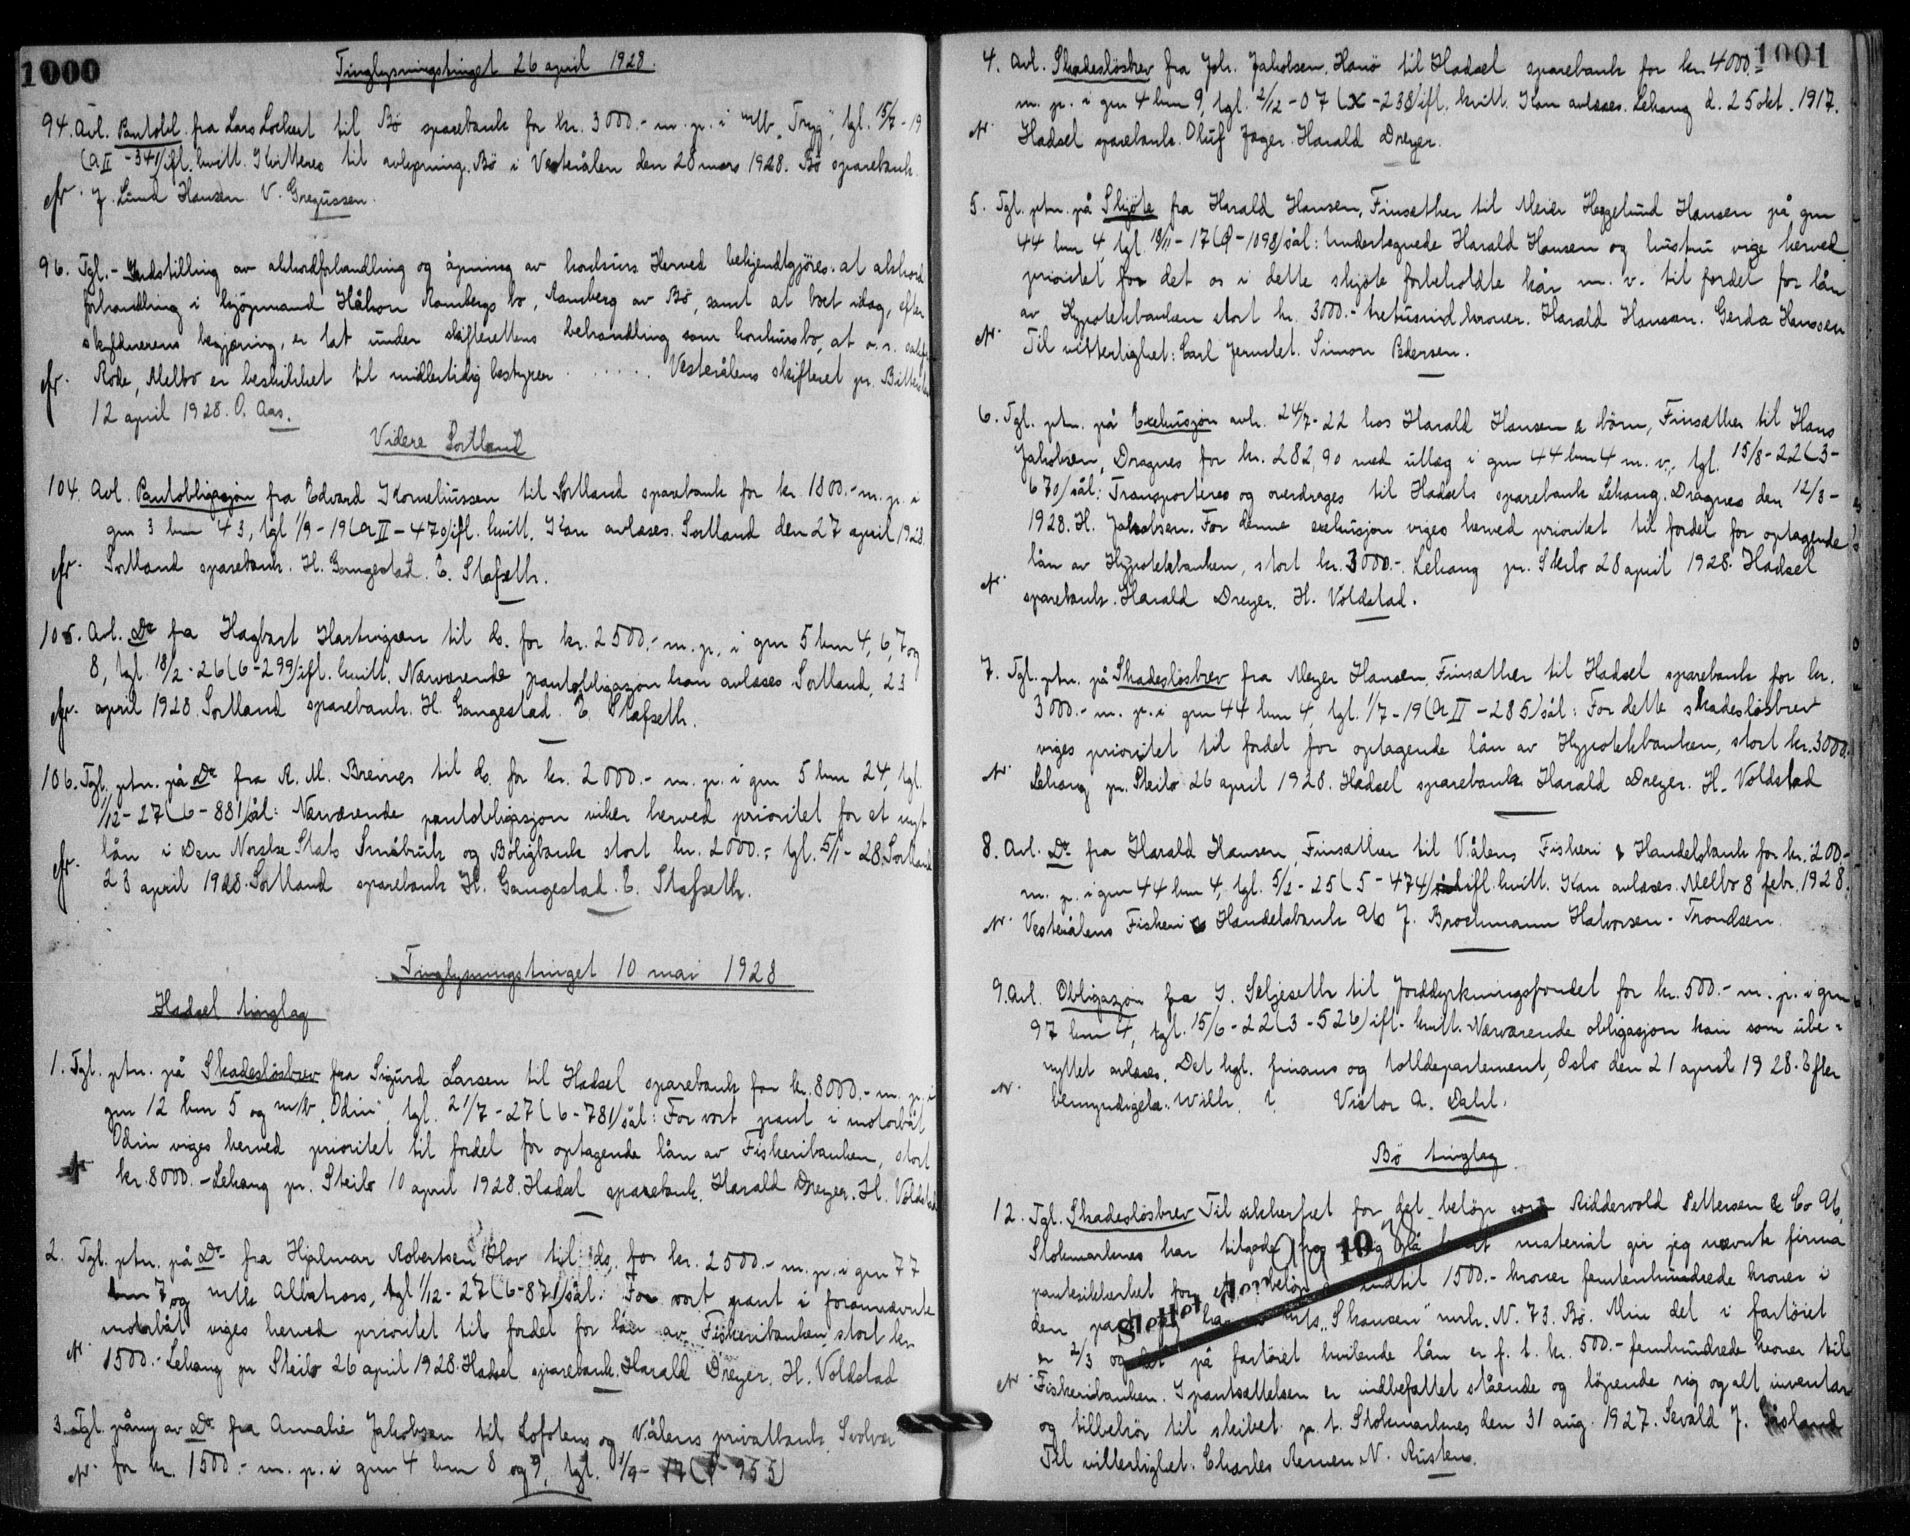 1000
Tinglysningstinget 26 april 1928.
94. Avl. Pantobl. fra Lars Lockert til Bø sparebank for kr. 3000.- m. p. i m/b "Tryg", tgl. 15/7-19
(A II -341) ifl. kvitt. Kvitteres til avlysning. Bø i Vesterålen den 28 mars 1928. Bø sparebank.
J. Lund Hansen V. Gregussen.
96. Tgl. - Indstilling av akkordforhandling og åpning av konkurs. Herved bekjendtgjøres at akkord
forhandling i kjøpmand Håkon Rambergs bo, Ramberg av Bø, samt at boet idag, efter
skyldnerens begjæring, er tat under skifterettens behandling som konkursbo, at o. r. sakf.
Rode, Melbo er beskikket til midlertidig bestyrer ...... Vesterålens skifteret pr.
12 april 1928. O. Aas.
Videre Sortland
104. Avl. Pantobligasjon fra Edvard Korneliussen til Sortland sparebank for kr. 1800.- m. p. i
gm 3 bnr 43, tgl 1/9-19 (A II - 470) ifl. kvitt. Kan avlæses. Sortland den 27 april 1928
Sortland sparebank. H. Gangestad. E. Stafseth.
105. Avl. Do fra Hagbart Hartvigsen til do. for kr. 2500.- m. p. i gm 5 bnr 4, 6, 7 og
8, tgl. 18/2-26 (6-299) ifl. kvitt. Nærværende pantobligasjon kan avlæses. Sortland, 23
april 1928. Sortland sparebank. H. Gangestad. E. Stafseth.
106. Tgl. ptn. på Do fra R. M. Breines til do. for kr. 2000.- m. p. i gm 5 bnr 24, tgl.
1/12-27 (6-881) sål: Nærværende pantobligasjon viker herved prioritet for et nyt
lån i Den Norske Stats Småbruk og Boligbank stort kr. 2000.- tgl. 5/1-28. Sortland
23 april 1928. Sortland sparebank H. Gangestad. E. Stafseth.
Tinglysningstinget 10 mai 1928
Hadsel tinglag
1. Tgl. ptn. på Skadesløsbrev fra Sigurd Larsen til Hadsel sparebank for kr. 8000.- m. p. i
gm 12 bnr 5 og m/b "Odin", tgl. 21/7-27 (6-781) sål: For vort pant i motorbåt
Odin viges herved prioritet til fordel for optagende lån av Fiskeribanken, stort
kr. 8000.- Lekang pr. Steilo 10 april 1928. Hadsel sparebank. Harald Dreyer. H. Voldstad
2. Tgl. ptn. på Do fra Hjalmar Robertsen Hov til do. for kr. 2500.- m. p. i gm 77
bnr 7 og m/k Albatross, tgl 1/12-27 (6-871) sål: For vort pant i forannævnte
motorbåt viges herved prioritet til fordel for lån av Fiskeribanken stort kr
1500.- Lekang pr Steilo 26 april 1928. Hadsel sparebank. Harald Dreyer. H. Voldstad
3. Tgl. påny av Do fra Amalie Jakobsen til Lofotens og V.ålens privatbank, Svolvær
for kr. 1500.- m. p. i gm 4 bnr 8 og 9, tgl. 1/9-17 (P-955)
1001
4. Avl. Skadesløsbrev fra Joh. Jakobsen, Hanø til Hadsel sparebank for kr. 4000.-
m. p. i gm 4 bnr 9, tgl. 2/12-07 (X-238) ifl. kvitt. Kan avlæses. Lekang d. 25 okt. 1917.
Hadsel sparebank. Oluf Jager. Harald Dreyer.
5. Tgl. ptn. på Skjøte fra Harald Hansen, Finsæther til Meier Heggelund Hansen på gm
44 bnr 4, tgl 19/11-17 (P-1098) sål: Undertegnede Harald Hansen og hustru vige herved
prioritet for det os i dette skjøte forbeholdte kår m. v. til fordel for lån
av Hypotekbanken stort kr. 3000.- tretusind kroner. Harald Hansen. Gerda Hanssen
Til vitterlighet: Carl Jernslet. Simon Pedersen.
6. Tgl. ptn. på Exekusjon avh. 24/7-22 hos Harald Hansen & børn, Finsæther til Hans
Jakobsen, Dragnes for kr. 282,90 med utlæg i gm 44 bnr 4 m. v., tgl. 15/8-22 (3-
670) sål: Transporteres og overdrages til Hadsels sparebank Lekang. Dragnes den 12/3-
1928. H. Jakobsen. For denne exekusjon viges herved prioritet til fordel for optagende
lån av Hypotekbanken, stort kr. 3000.-. Lekang pr. Steilo 28 april 1928. Hadsel
sparebank. Harald Dreyer. H. Voldstad.
7. Tgl. ptn. på Skadesløsbrev fra Meyer Hansen, Finsæther til Hadsel sparebank for kr.
3000.- m. p. i gm 44 bnr 4, tgl. 1/7-19 (A II - 285) sål: For dette skadesløsbrev
viges prioritet til fordel for optagende lån av Hypotekbanken, stort kr. 3000.
Lekang pr. Steilo 26 april 1928. Hadsel sparebank. Harald Dreyer. H. Voldstad
8. Avl. Do fra Harald Hansen, Finsæther til V.ålens Fiskeri & Handelsbank for kr. 1200.-
m. p. i gm 44 bnr 4, tgl. 5/2-25 (5-474) ifl. kvitt. Kan avlæses. Melbo 8 febr. 1928.
Vesterålens Fiskeri & Handelsbank A/S J. Brochmann Halvorsen - Trondsen.
9. Avl. Obligasjon fra J. Seljeseth til Jorddyrkningsfondet for kr. 500.- m. p. i gm
97 bnr 4, tgl. 15/6-22 (3-526) ifl. kvitt. Nærværende obligasjon kan som ube-
nyttet avlæses. Det kgl. finans og tolldepartement, Oslo den 21 april 1928. Efter
bemyndigelse. Wilh. Victor A. Dahl.
Bø tinglag
12. Tgl. Skadesløsbrev Til sikkerhet for det beløp som Riddervold Pettersen & Co A/S,
Stokmarknes har tilgode hos mig på material gir jeg nævnte firma
pantesikkerhet for et beløp indtil 1500.- kroner femtenhundrede kroner i
den part jeg har "Skansen" mrk. N. 73. Bø. Min del i fartøiet
er 2/3 og det på fartøiet hvilende lån er f. t. kr. 500.- femhundrede kroner til
Fiskeribanken. I pantsættelsen er indbefattet stående og løpende rig og alt inventar
og tilbehør til skibet. p. t. Stokmarknes den 31 aug. 1927. Sevald J.
Til vitterlighet. Charles Remen N. Rusten.
Slettet